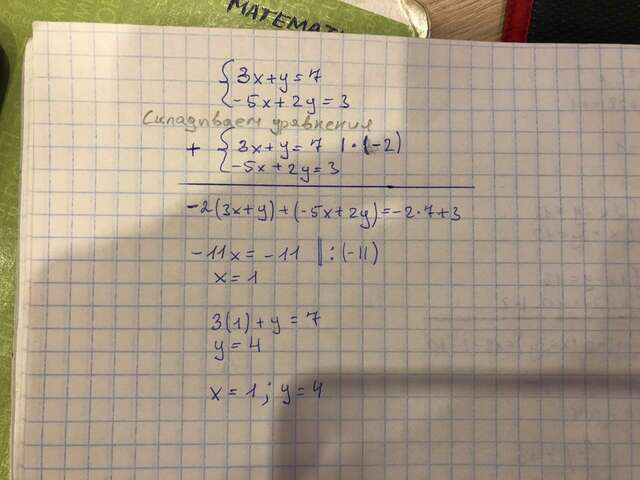 МАТЕМАТ
{3x+y=7
-5x+2y=3
Складываем уравнения
+ {3x+y=7 |·(-2)
-5x+2y=3
-2(3x+y)+(-5x+2y)=-2·7+3
-11x=-11 |:(-11)
x=1
3(1)+y=7
y=4
x=1; y=4